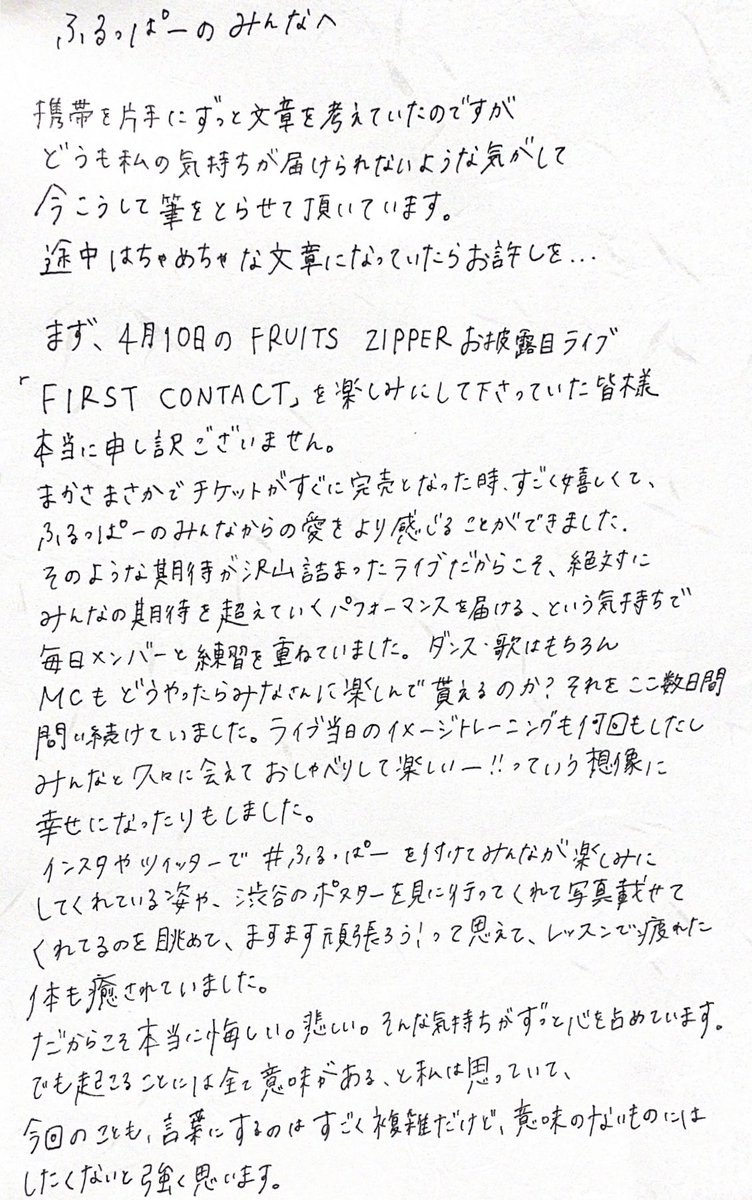 ふるっぱーのみんなへ
携帯を片手にずっと文章を考えていたのですが
どうも私の気持ちが届けられないような気がして
今こうして筆をとらせて頂いています。
途中はちゃめちゃな文章になっていたらお許しを...
まず、4月10日の FRUITS ZIPPERお披露目ライブ
「FIRST CONTACT」を楽しみにして下さっていた皆様
本当に申し訳ございません。
まかさまさかでチケットがすぐに完売となった時、すごく嬉しくて、
ふるっぱーのみんなからの愛をより感じることができました.
そのような期待が沢山詰まったライブだからこそ、絶対に
みんなの期待を超えていくパフォーマンスを届ける、という気持ちで
毎日メンバーと練習を重ねていました。ダンス・歌はもちろん
MCもどうやったらみなさんに楽しんで貰えるのか?それをここ数日間
問い続けていました。ライブ当日のイメージトレーニングも何回もしたし
みんなと久々に会えておしゃべりして楽しいー!!っていう想像に
幸せになったりもしました。
インスタやツイッターで #ふるっぱー を付けてみんなが楽しみに
してくれている姿や、渋谷のポスターを見に行ってくれて写真載せて
くれてるのを眺めて、ますます頑張ろう!って思えて、レッスンで疲れた
体も癒されていました。
だからこそ本当に悔しい。悲しい。そんな気持ちがずっと心を占めています。
でも起こることには全て意味がある、と私は思っていて、
今回のことも、言葉にするのはすごく複雑だけど、意味のないものには
したくないと強く思います。